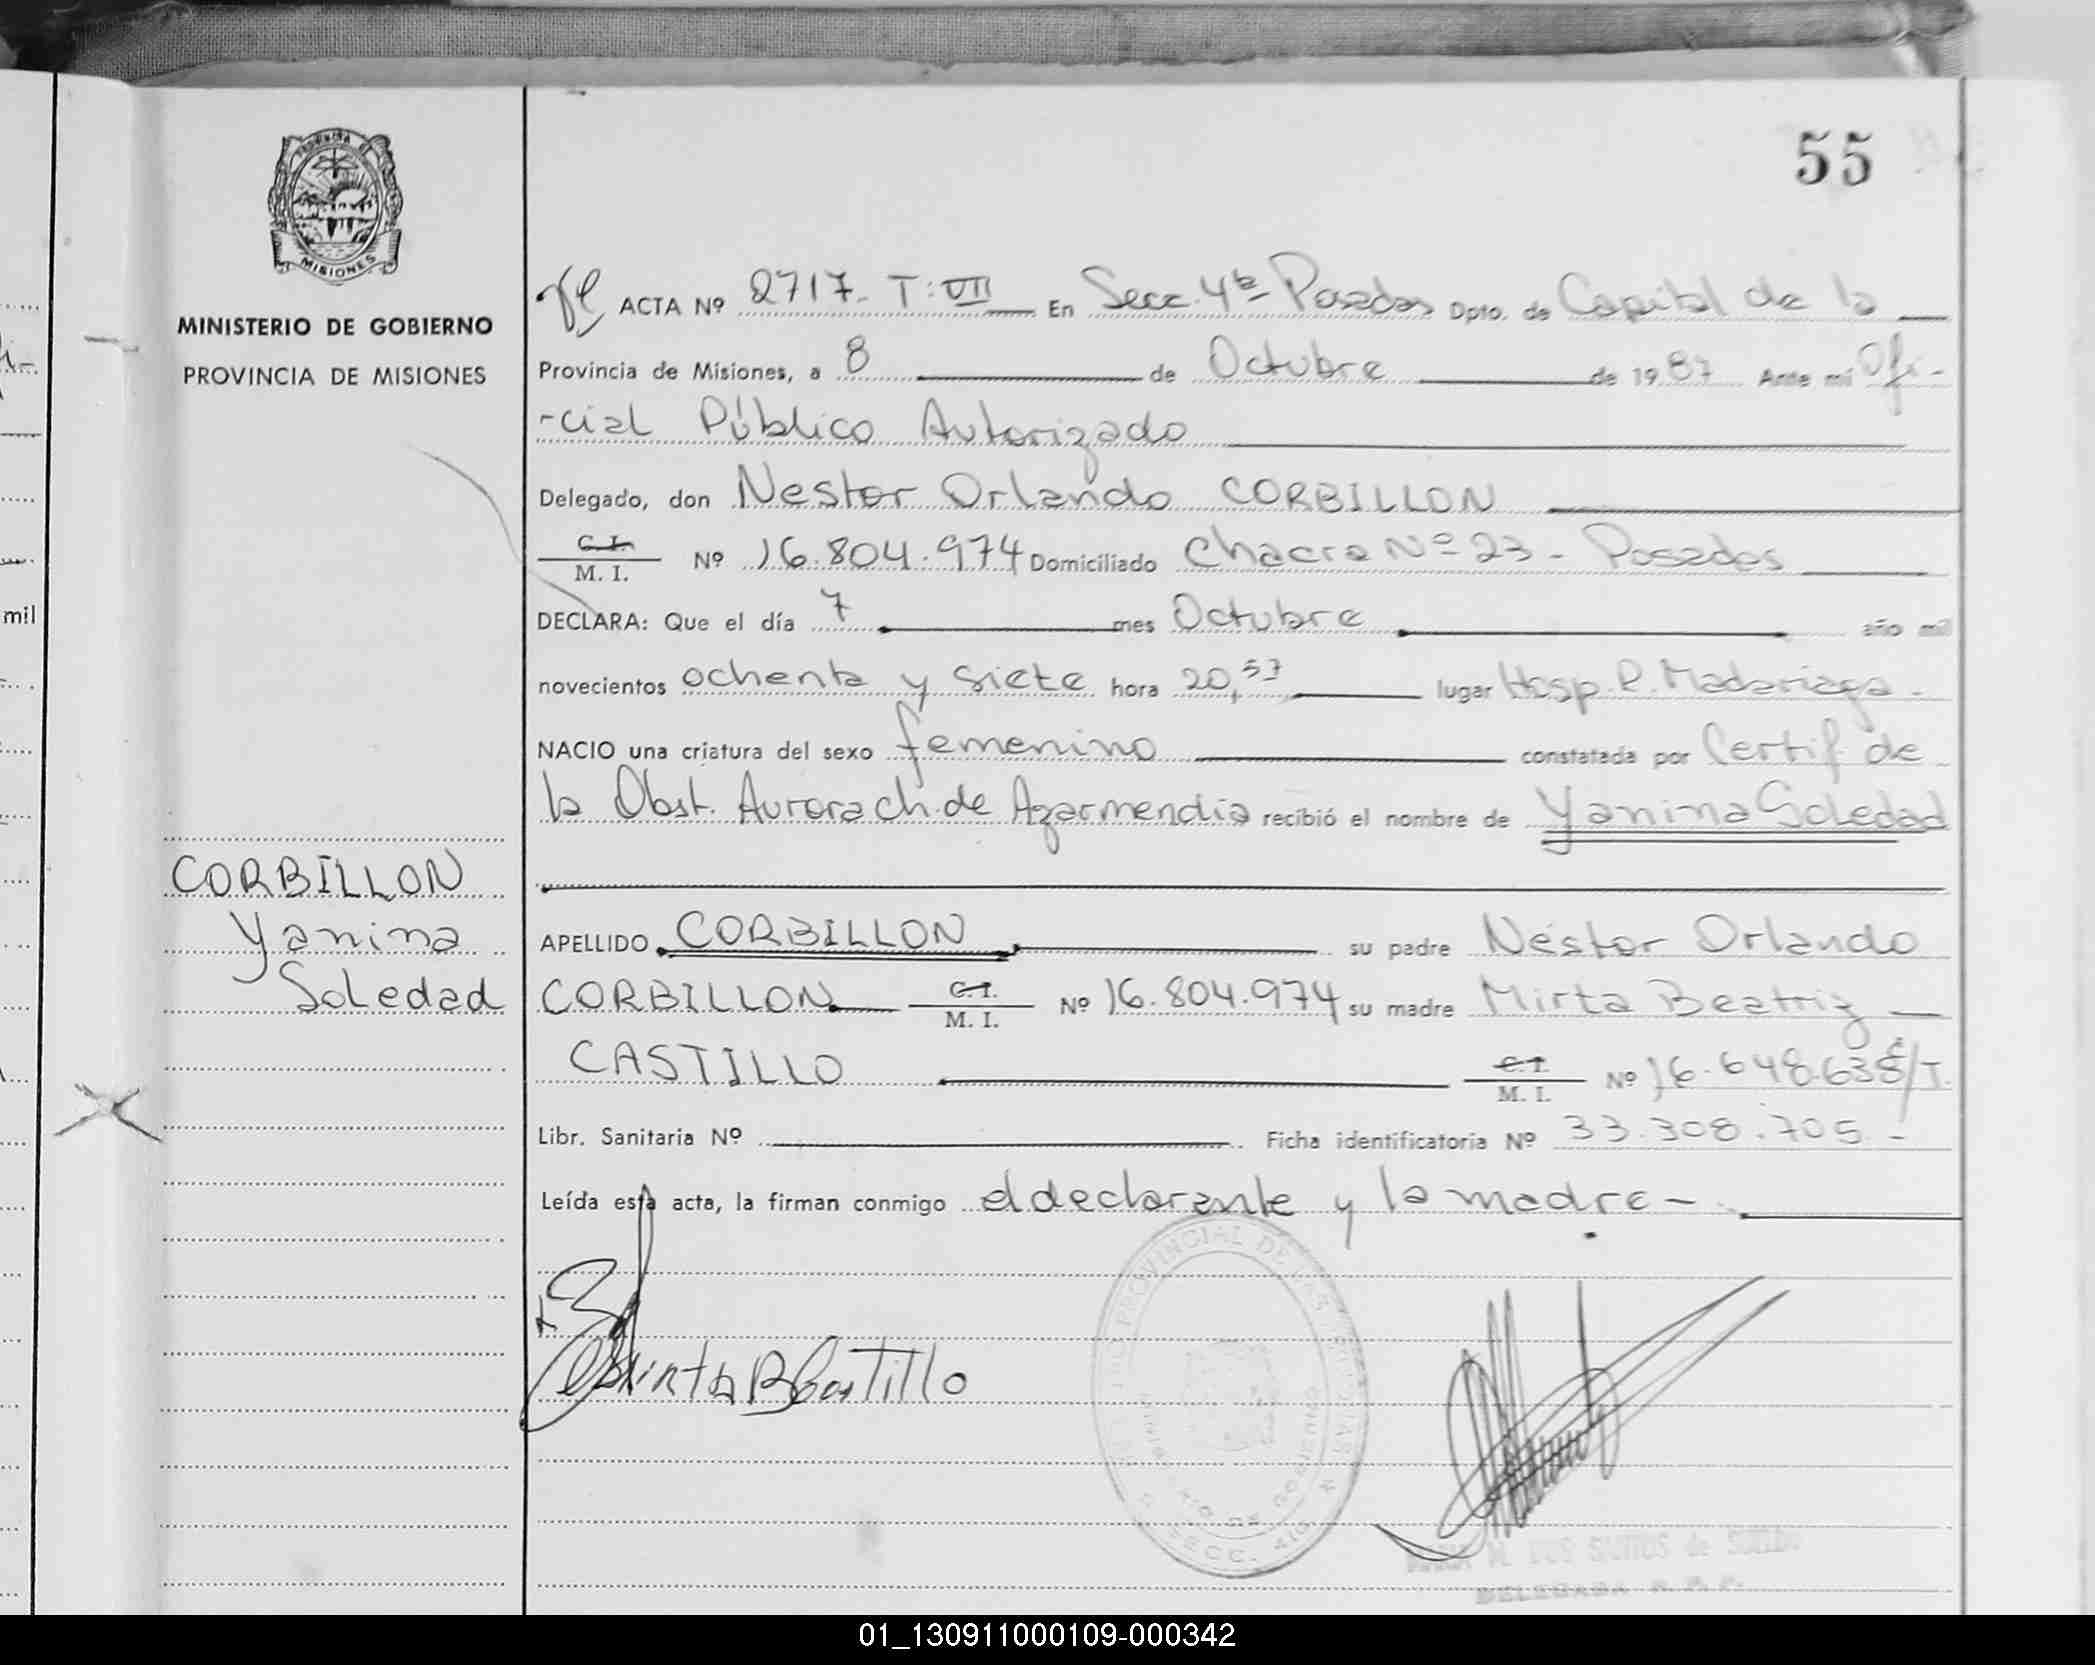 55
PROVINCIA DE
MISIONES
MINISTERIO DE GOBIERNO
PROVINCIA DE MISIONES
ACTA Nº 2717. T: VII En Secc. 4ta Posadas Dpto. de Capital de la
Provincia de Misiones, a 8 de Octubre de 1987 Ante mí Ofi-
-cial Público Autorizado
Delegado, don Nestor Orlando CORBILLON
C. I. / M. I. Nº 16.804.974 Domiciliado Chacra Nº 23 - Posadas
DECLARA: Que el día 7 mes Octubre año mil
novecientos ochenta y siete hora 20,57 lugar Hosp. R. Madariaga.
NACIO una criatura del sexo femenino constatada por Certif de
la Obst. Aurora ch. de Azarmendia recibió el nombre de Yanina Soledad
CORBILLON
Yanina
Soledad
APELLIDO CORBILLON su padre Néstor Orlando
CORBILLON C. I. / M. I. Nº 16.804.974 su madre Mirta Beatriz
CASTILLO C. I. / M. I. Nº 16.648.638 /T.
Libr. Sanitaria Nº Ficha identificatoria Nº 33.308.705.-
Leída esta acta, la firman conmigo el declarante y la madre -.
Mirta B Castillo
PROVINCIAL DE LAS
SECC. 4ta
DOS SANTOS de
DELEGADA
mil
01_130911000109-000342